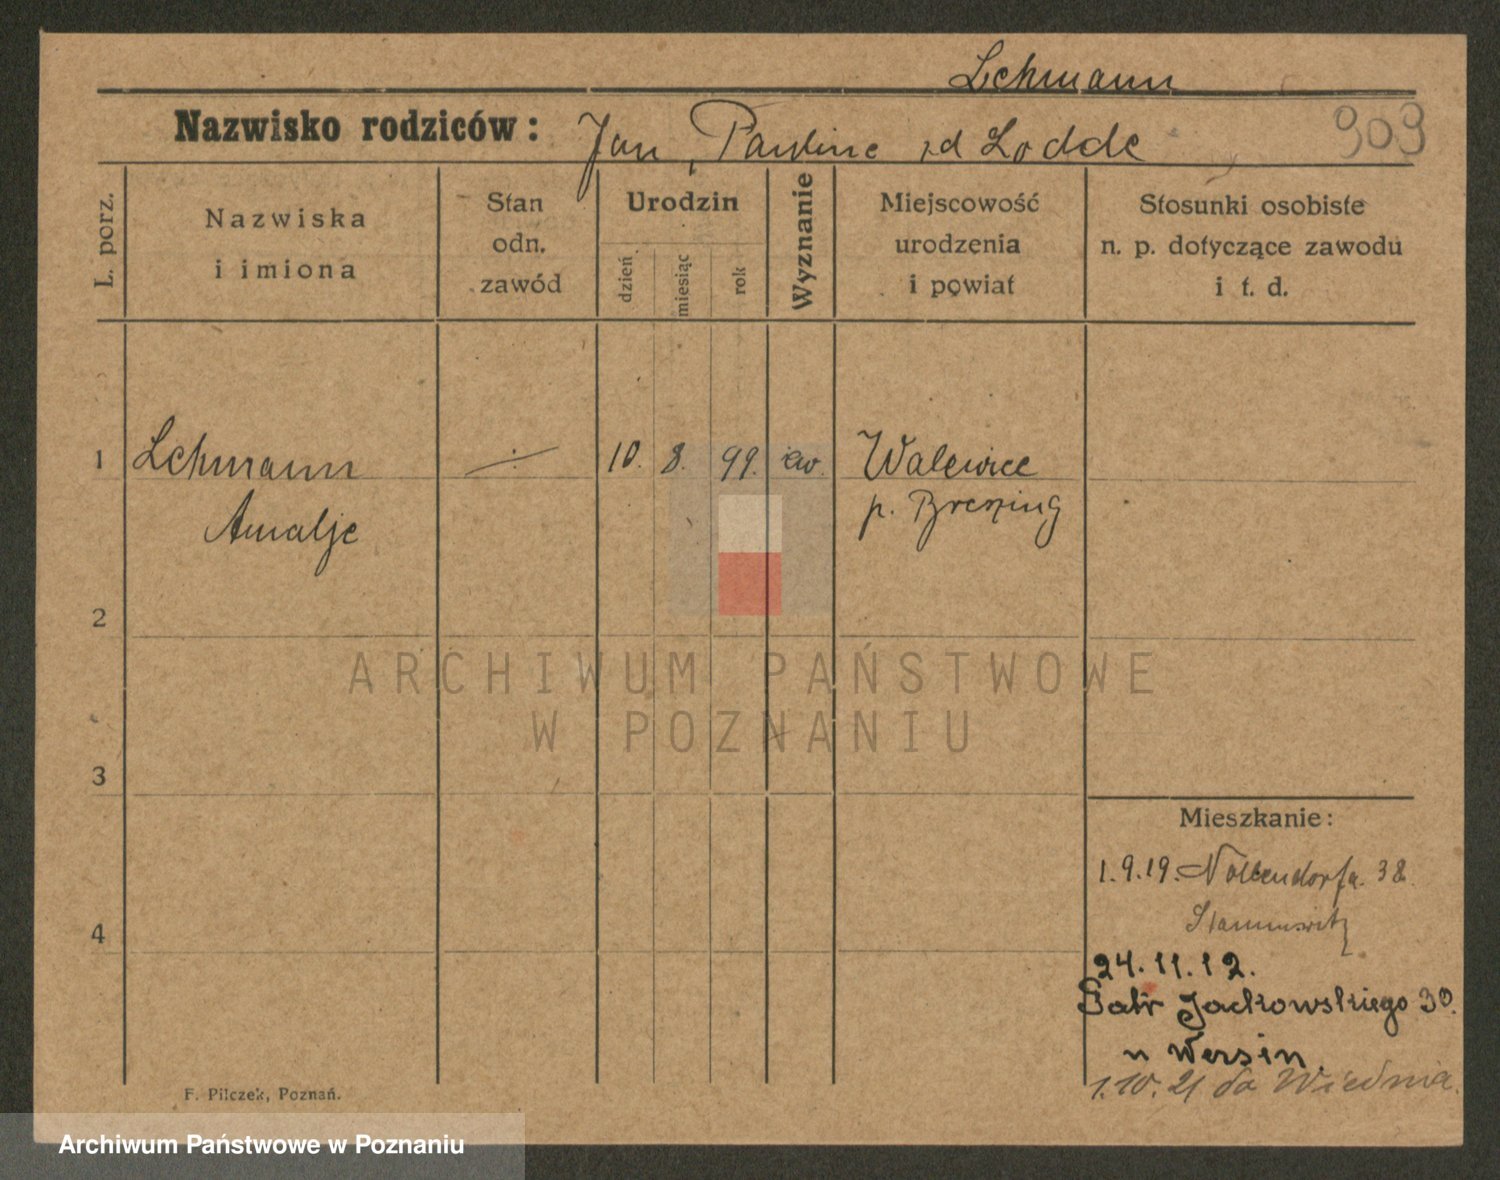 Lehmann
Nazwisko rodziców: Jan, Pauline zd Lodde
909
L. porz.
Nazwiska
i imiona
Stan
odn.
zawód
Urodzin
dzień
miesiąc
rok
Wyznanie
Miejscowość
urodzenia
i powiat
Stosunki osobiste
n. p. dotyczące zawodu
i t. d.
1 Lehmann 10. 8. 99. ew. Walewice
Amalje p.
2
ARCHIWUM PAŃSTWOWE
W POZNANIU
3
Mieszkanie:
1.9.19. Nollendorfa. 38.
4
24.11.12.
Patr Jackowskiego 30.
u Wersin.
1.10.21 do Wiednia.
F. Pilczek, Poznań.
Archiwum Państwowe w Poznaniu